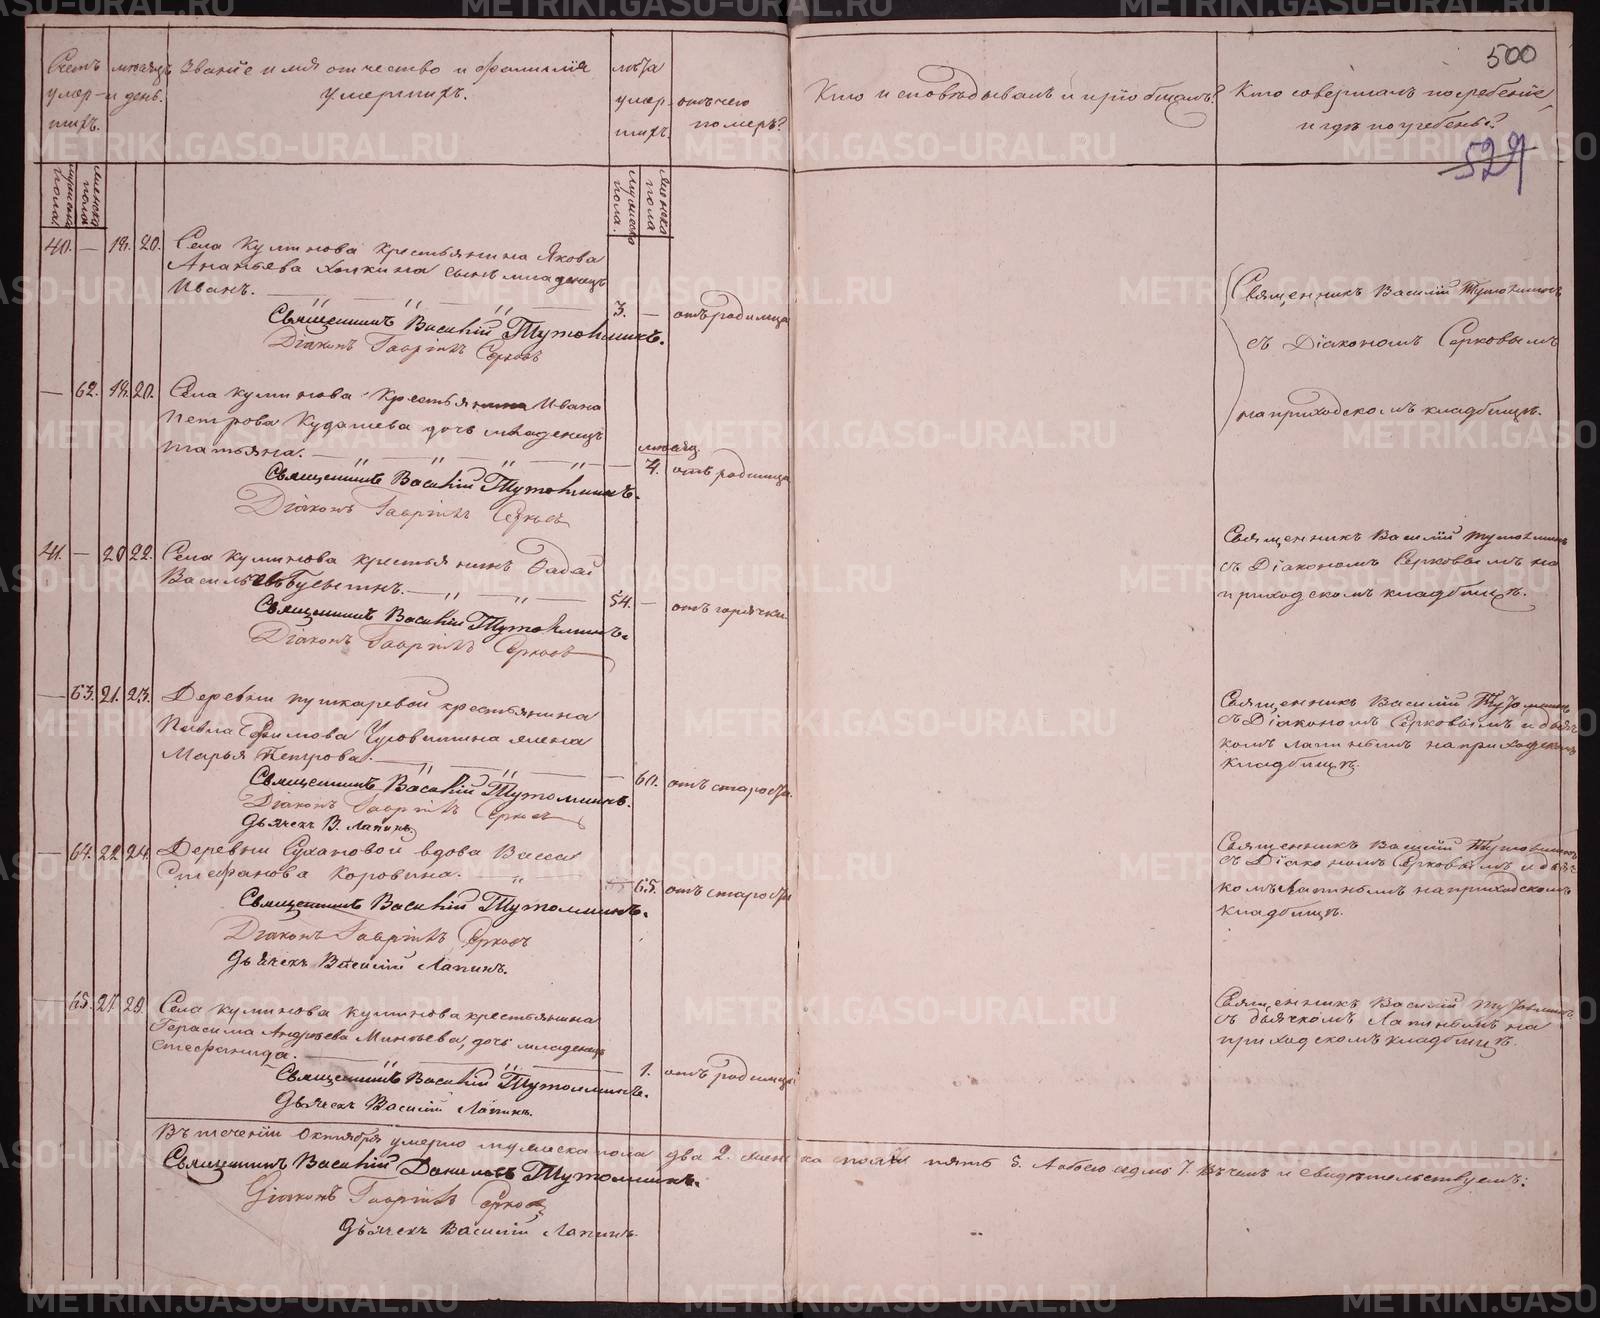 500
529
Счетъ умер-шихъ.
мѣсяцъ и день.
Званіе имя отчество и фамилія умершихъ.
лѣта умер-шихъ.
отъ чего померъ?
Кто исповѣдывалъ и пріобщалъ?
Кто совершалъ погребеніе, и гдѣ погребены?
мужеска пола.
женска пола
мужеска пола.
женска пола
40. — 18. 20. Села Куминова крестьянина Якова
Ананьева сынъ младенецъ
Иванъ. 3. — отъ родимца
Священникъ Василій Тутолминъ.
Діаконъ Гавріилъ Серковъ
Священникъ Василій Тутолминъ
съ Діакономъ Серковымъ
на приходскомъ кладбищѣ.
— 62. 18. 20. Села Куминова крестьянина Ивана
Петрова Кудашева дочь младенецъ
Татьяна. мѣсяц. 4. отъ родимца
Священникъ Василій Тутолминъ.
Діаконъ Гавріилъ Серковъ
41. — 20 22. Села Куминова крестьянинъ
Васильевъ 54. — отъ горячки
Священникъ Василій Тутолминъ.
Діаконъ Гавріилъ Серковъ
Священникъ Василій Тутолминъ
съ Діакономъ Серковымъ на
приходскомъ кладбищѣ.
— 63. 21. 23. Деревни Пушкаревой крестьянина
Павла жена
Марья Петрова. — 60. отъ старости
Священникъ Василій Тутолминъ.
Діаконъ Гавріилъ Серковъ
Дьячекъ В. Лапинъ
Священникъ Василій Тутолминъ
съ Діакономъ Серковымъ и дьяч-
комъ Лапинымъ на приходскомъ
кладбищѣ.
— 64. 22 24. Деревни Сухановой вдова Васса
Стефанова Коровина. 65. отъ старости
Священникъ Василій Тутолминъ.
Діаконъ Гавріилъ Серковъ
Дьячекъ Василій Лапинъ.
Священникъ Василій Тутолминъ
съ Діакономъ Серковымъ и дьяч-
комъ Лапинымъ на приходскомъ
кладбищѣ.
— 65. 27. 29. Села Куминова Куминова крестьянина
Герасима Андреева Минѣева, дочь младенецъ
Стефанида. — 1. отъ родимца
Священникъ Василій Тутолминъ.
Дьячекъ Василій Лапинъ.
Священникъ Василій Тутолминъ
съ дьячкомъ Лапинымъ на
приходскомъ кладбищѣ.
Въ теченіи Октября умерло мужеска пола два 2. женска пола пять 5. А обоего седмь 7. Въ чемъ и свидѣтельствуемъ:
Священникъ Василій Даниловъ Тутолминъ.
Діаконъ Гавріилъ Серковъ
Дьячекъ Василій Лапинъ.
METRIKI.GASO-URAL.RU